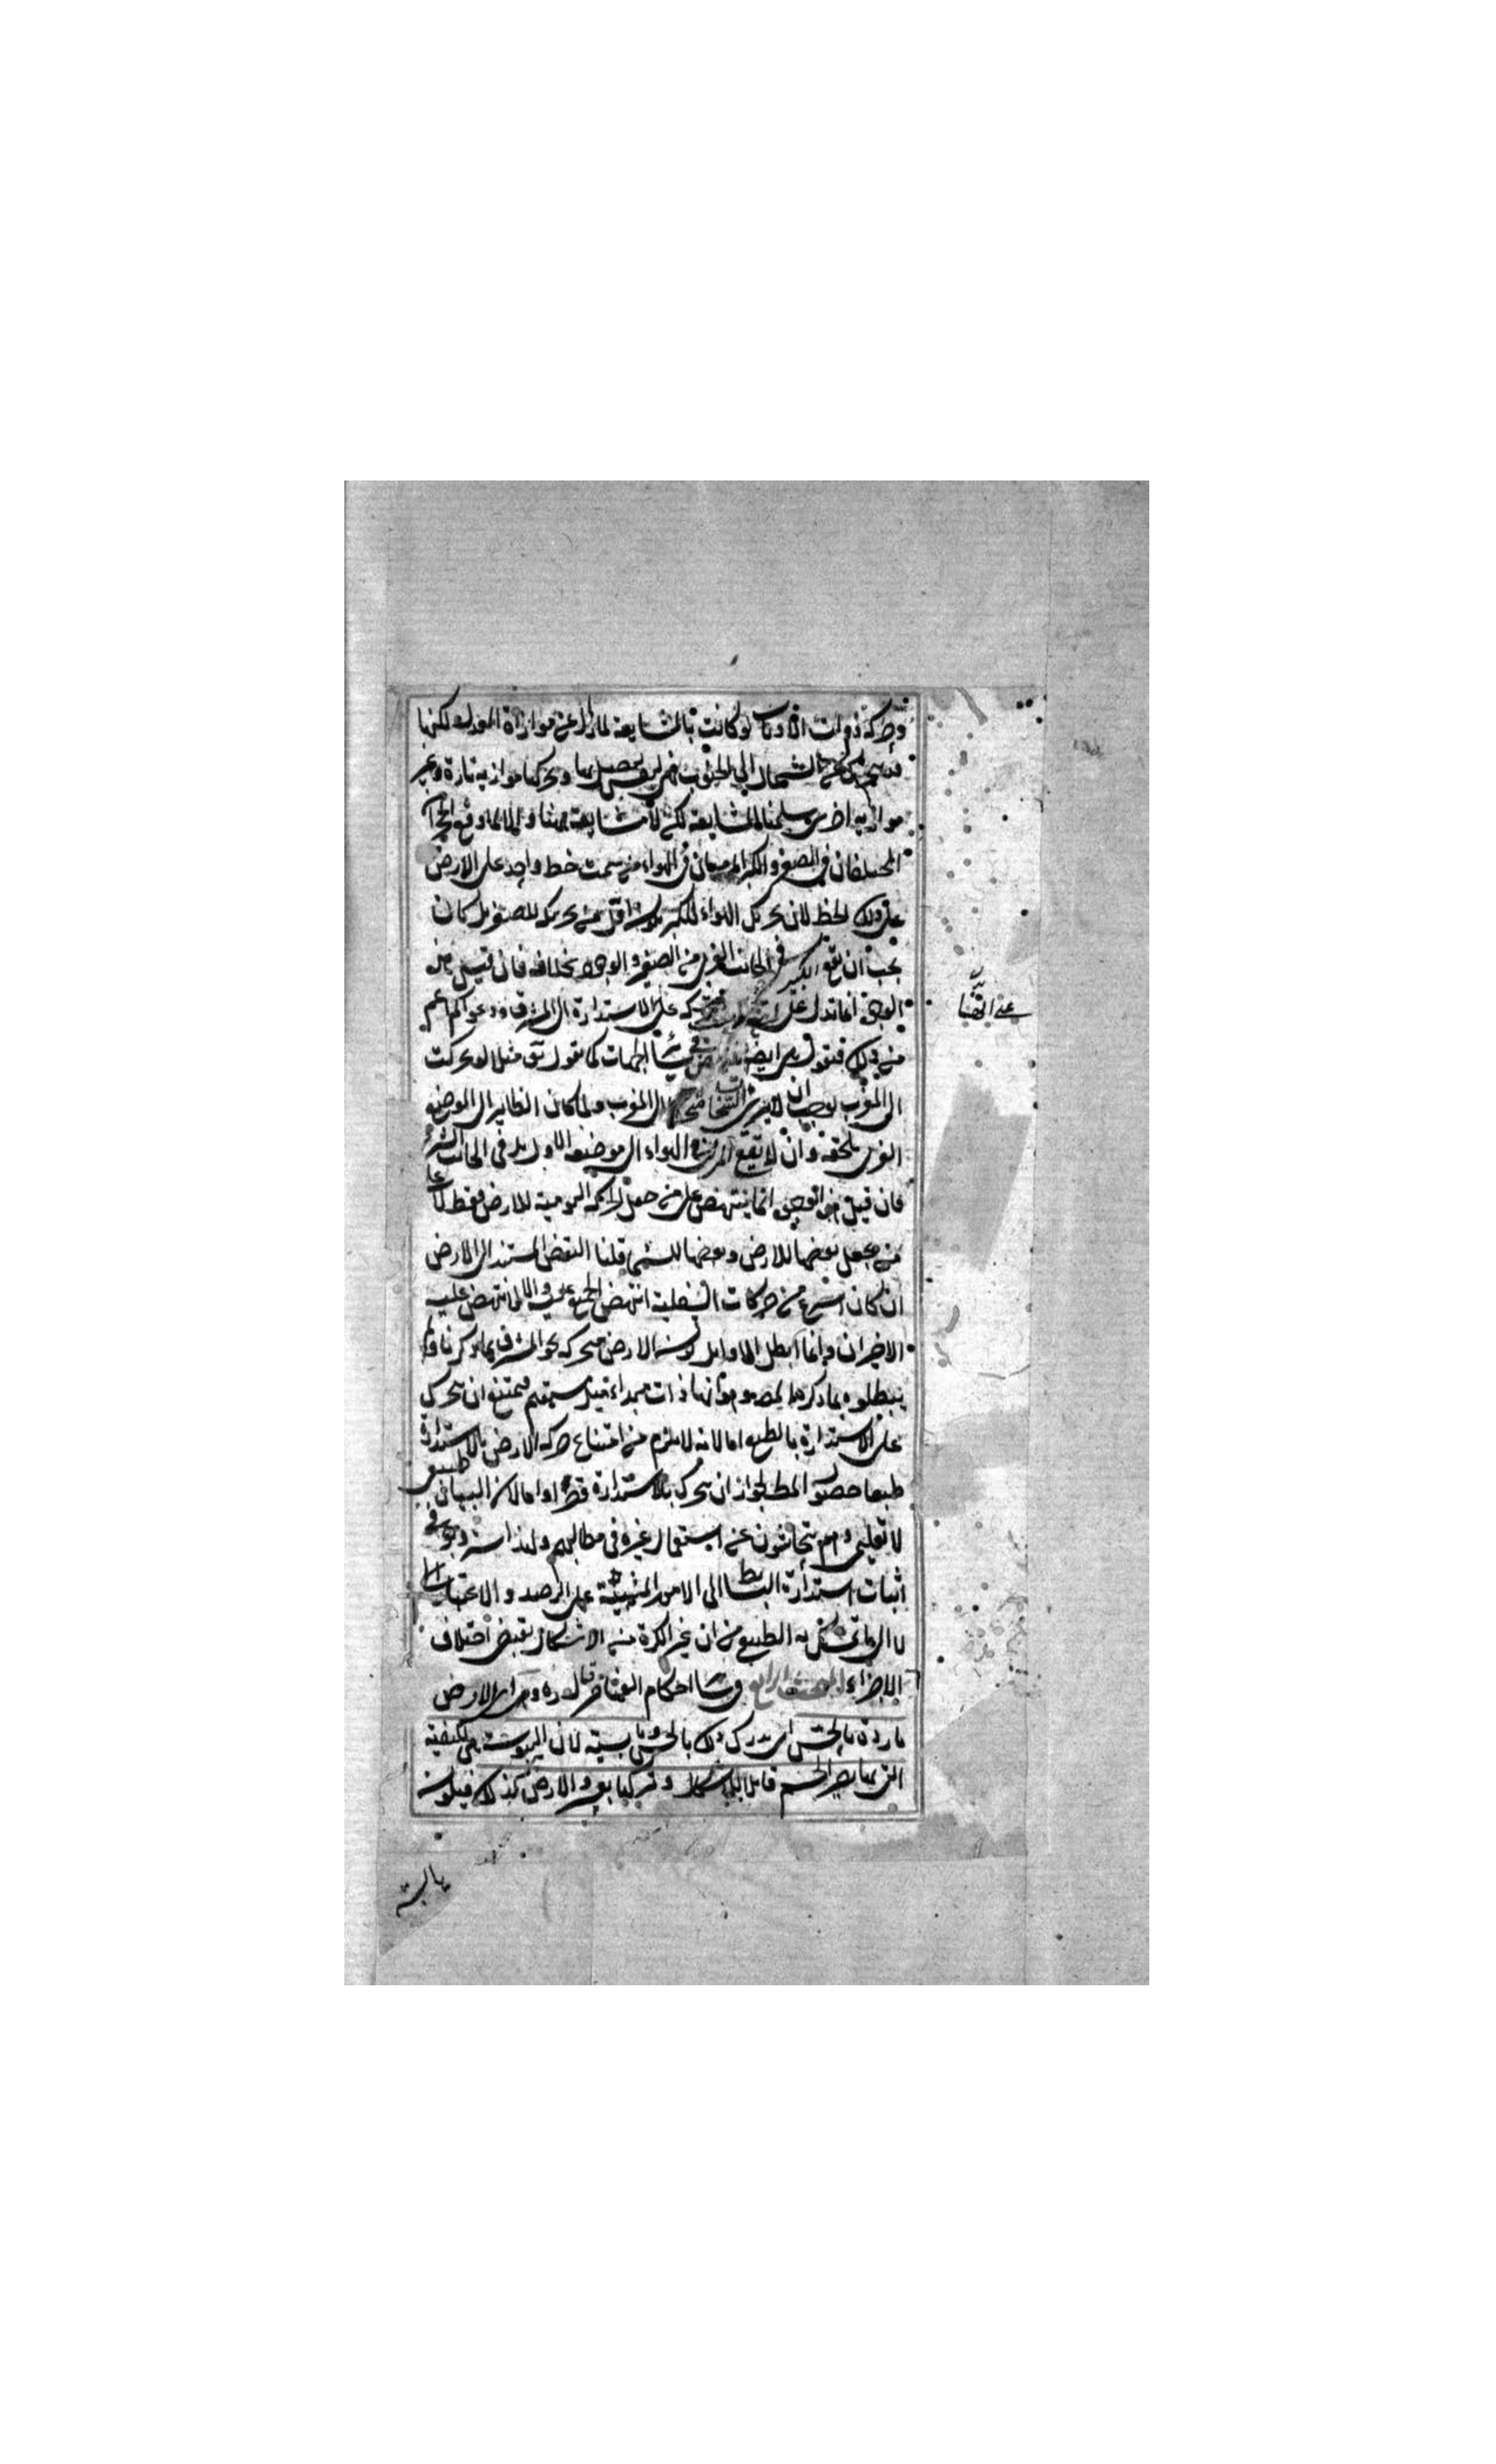 وحركة ذوات الاذناب لو كانت بالمشايعة لما زال عن موازاة المعدل لكنها
قد تتحرك عن الشمال الى الجنوب فهي لنفس تتصل بها وتحركها موازية تارة وغير
موازية اخرى سلمنا المشايعة لكن لا مشايعة ههنا والا لما وقع الحجران
المختلفان في الصغر والكبر المرميان في الهواء من سمت خط واحد على الارض
على ذلك الخط لان تحريك الهواء للكبير يكون اقل من تحريكه للصغير بل كان
يجب ان يقع الكبير في الجانب الغربي من الصغير والوجود بخلافه فان قيل هذه
الوجوه انما تدل على انها ليست متحركة على الاستدارة الى المشرق ودعواكم اعم
من ذلك فنقول هي ايضا في سائر الجهات كما نقول مثلا لو تحركت
الى المغرب لوجب ان لا يرى السحاب متحركا الى المغرب ولما كان الطاير الى الموضع
الذي يلحقه وان لا يقع المرمي في الهواء الى موضعه الاول بل في الجانب الشرقي
فان قيل هذه الوجوه انما ينتهض على من جعل الحركة اليومية للارض فقط لا على
من يجعل بعضها للارض وبعضها للسماء قلنا البعض المستند الى الارض
ان كان اسرع من حركات السفلية انتهض الجميع عليه والا انتهض عليه
الاخيران وانما ابطل الاوايل كون الارض متحركة نحو المشرق بما ذكرنا ولم
يبطلوه بما ذكره المص وهو انها ذات مبداء ميل مستقيم فيمتنع ان تتحرك
على الاستدارة بالطبع اما لانه لا يلزم من امتناع حركة الارض بالاستدارة
طبعا حصول المط لجواز ان تتحرك بالاستدارة قسرا واما لان البيان طبيعي
لا تعليمي وهم يتحاشون عن استعمال غيره في مطالبهم ولهذا استندوا في
اثبات استدارة البسائط الى الامور المبنية على الرصد والاعتبارات
لا الى ما تمسك به الطبيعي من ان غير الكرة من الاشكال يقتضي اختلاف
الاجزاء المبحث الرابع في سائر احكام العناصر قال قده وهي اي الارض
باردة بالحس اي يدرك ذلك بالحس ويابسة لان اليبوسة هي الكيفية
التي بها يصير الجسم قابلا للاشكال وتركها بعسر والارض كذلك فيكون
على انها
يابسة